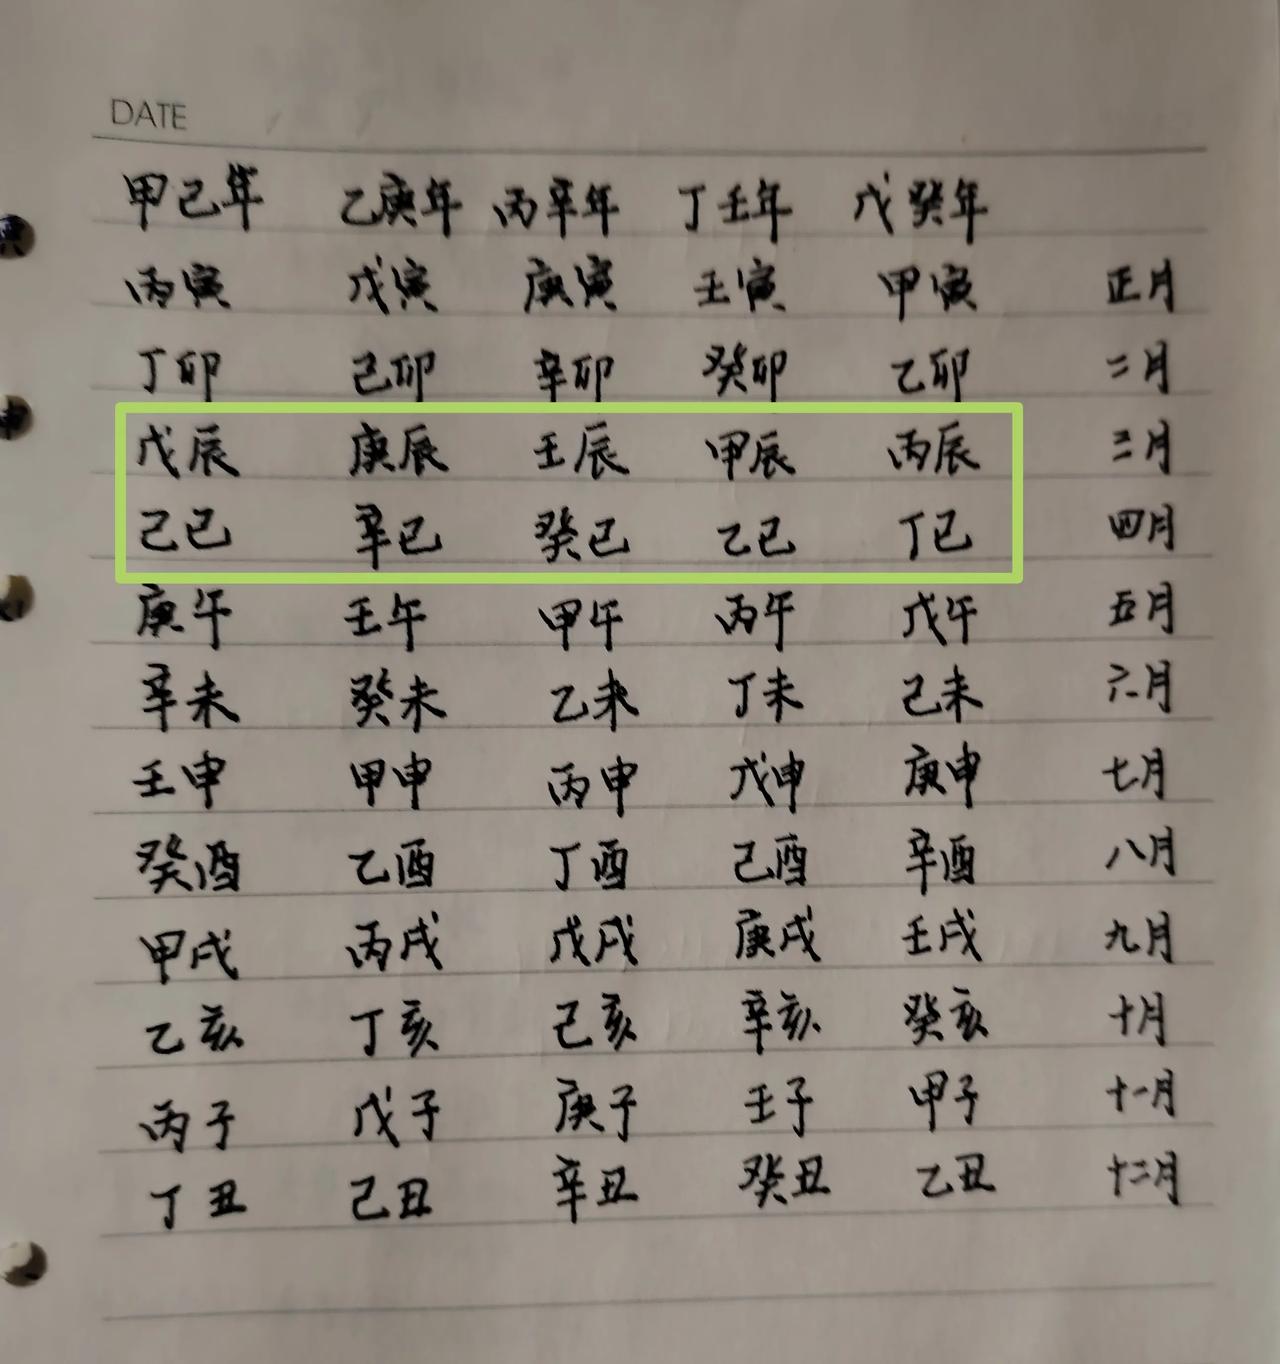 DATE
甲己年 乙庚年 丙辛年 丁壬年 戊癸年
丙寅 戊寅 庚寅 壬寅 甲寅 正月
丁卯 己卯 辛卯 癸卯 乙卯 二月
戊辰 庚辰 壬辰 甲辰 丙辰 三月
己巳 辛巳 癸巳 乙巳 丁巳 四月
庚午 壬午 甲午 丙午 戊午 五月
辛未 癸未 乙未 丁未 己未 六月
壬申 甲申 丙申 戊申 庚申 七月
癸酉 乙酉 丁酉 己酉 辛酉 八月
甲戌 丙戌 戊戌 庚戌 壬戌 九月
乙亥 丁亥 己亥 辛亥 癸亥 十月
丙子 戊子 庚子 壬子 甲子 十一月
丁丑 己丑 辛丑 癸丑 乙丑 十二月